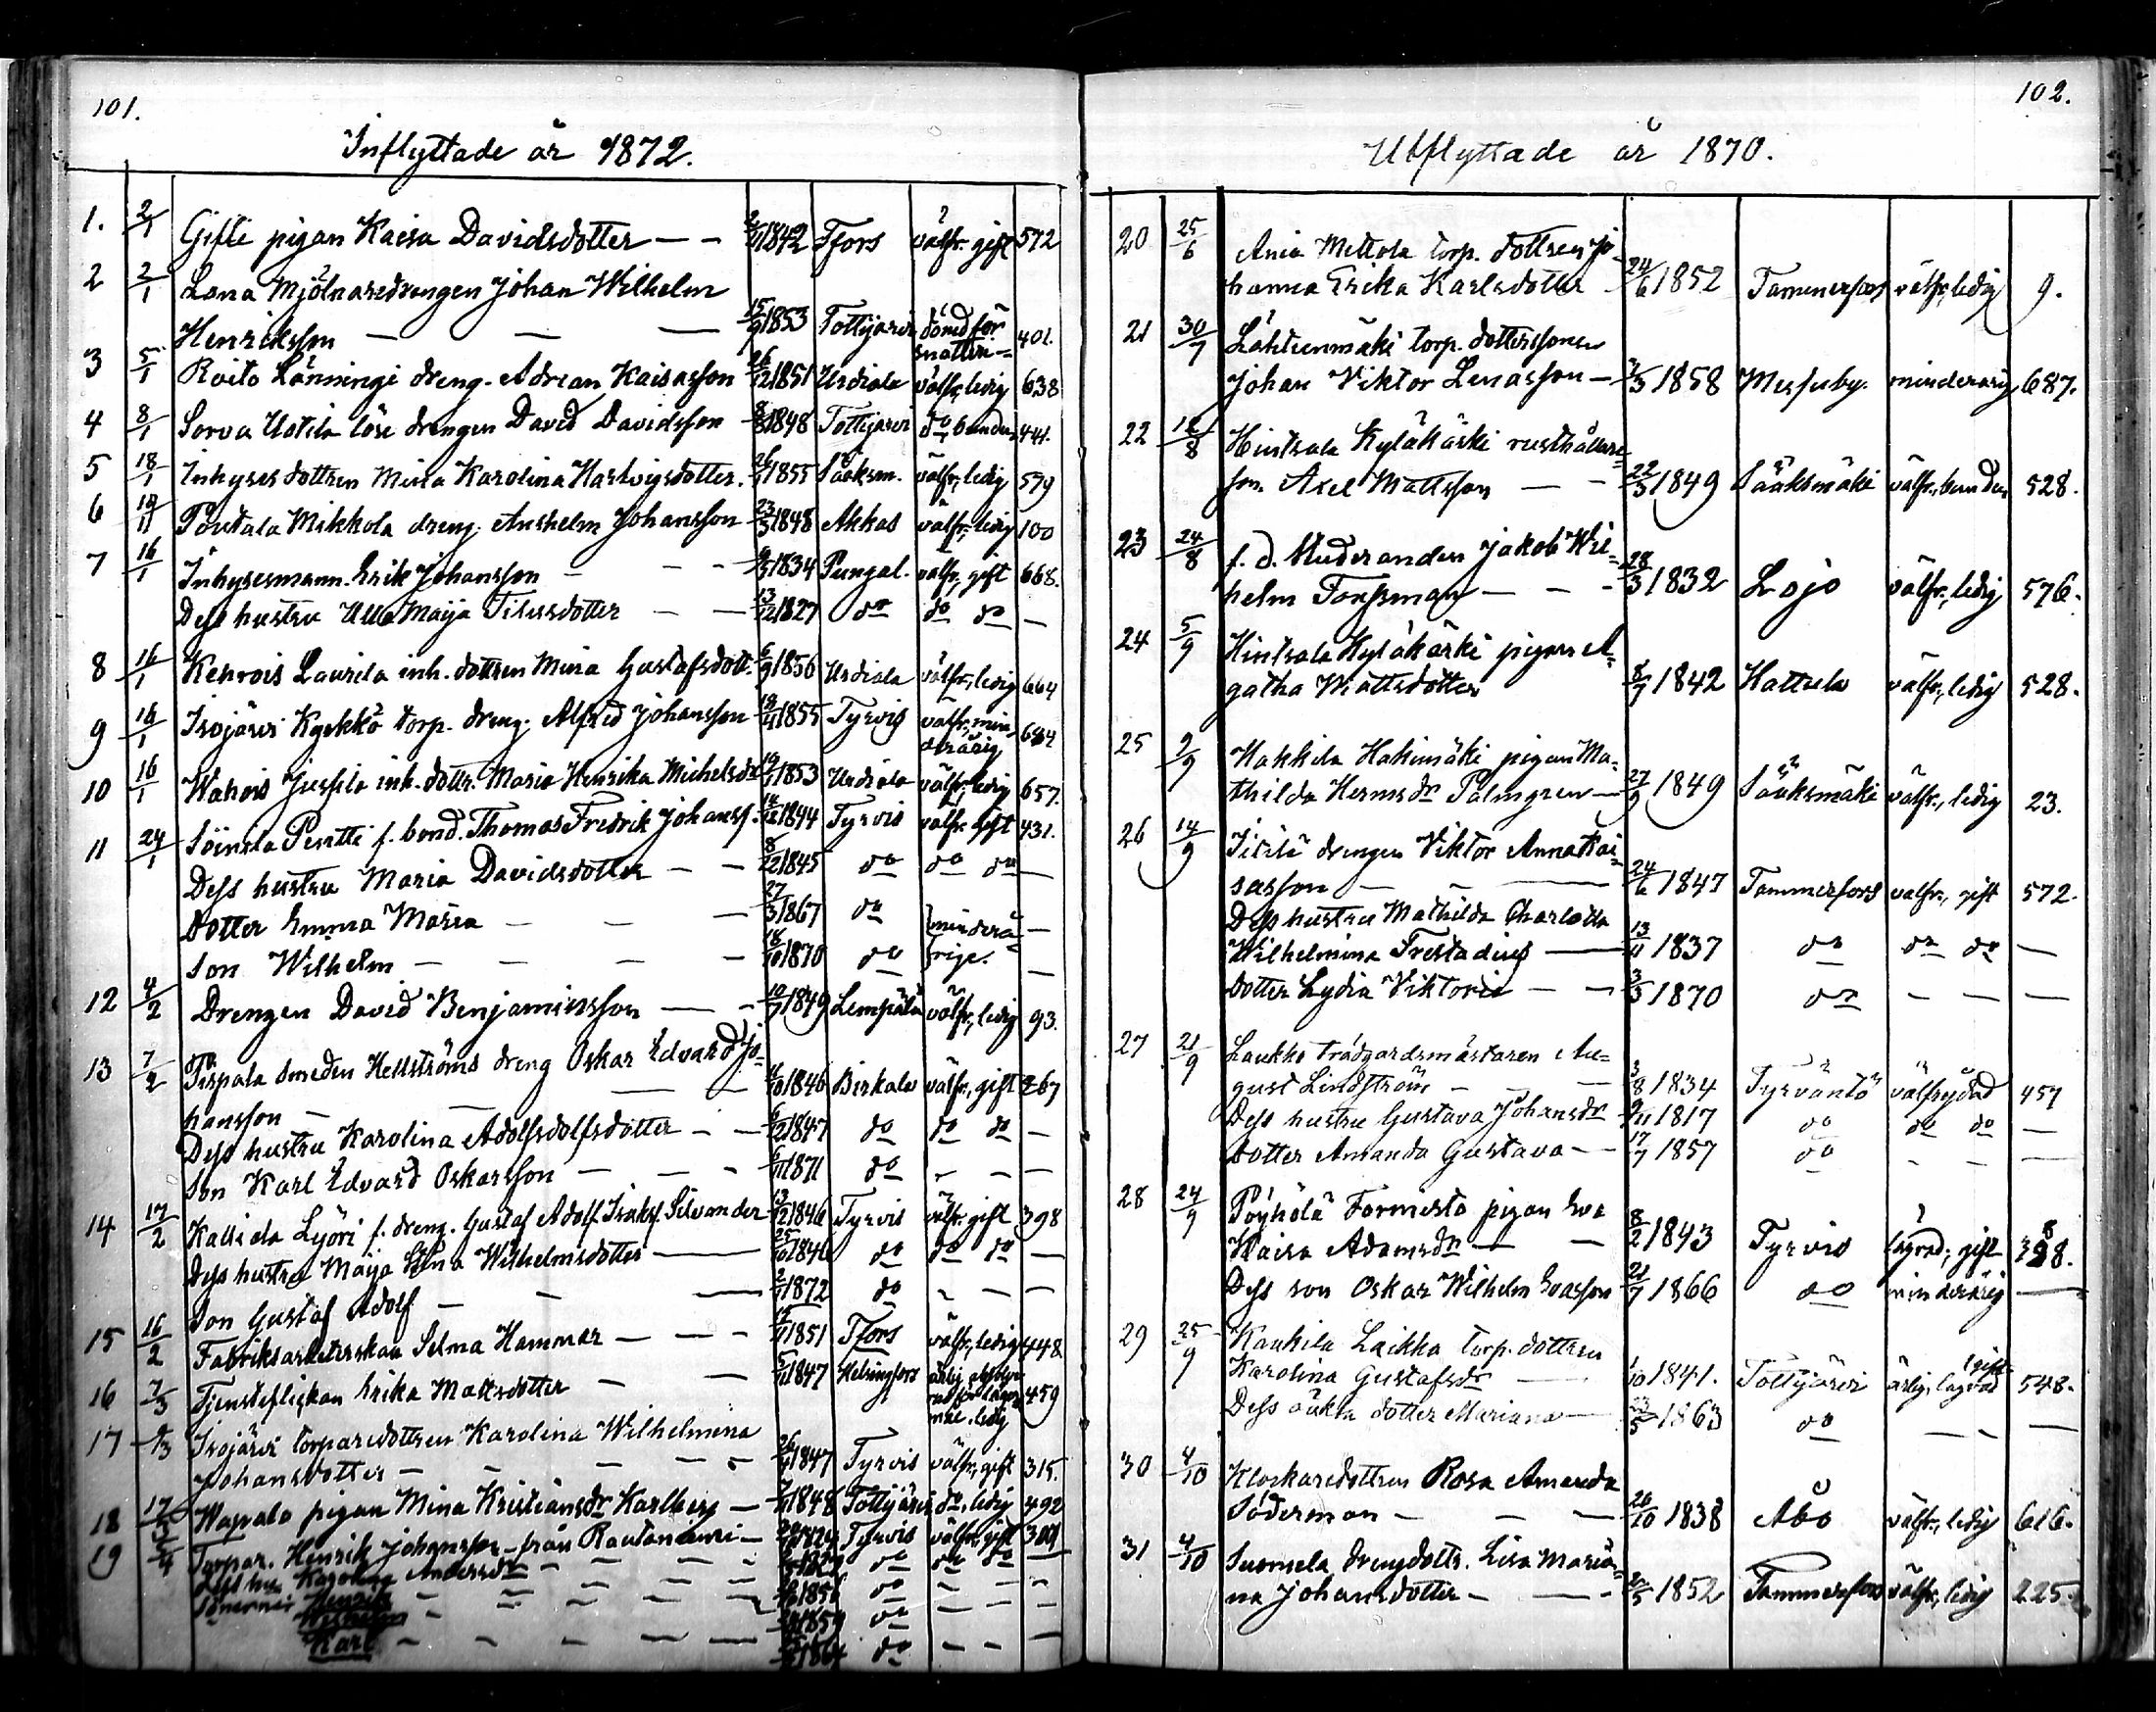 101.
Inflyttade år 1872.
1. 2/1 Gifte pigan Kaisa Davidsdotter — — 1842 Tfors välfr. gift 572
2 2/1 Lana Mjölnaredrengen Johan Wilhelm
Henriksson — — — 15/9 1853 Tottijärvi dömd för snatteri 401.
3 5/1 Roito Länningi dreng. Adrian Kaisasson 26/12 1851 Urdiala välfr., ledig 638
4 8/1 Sorva Uotila löse drengen David Davidsson 8/8 1848 Tottijärvi do, bunden 441.
5 18/1 Inhyses dottren Mina Karolina Hartvigsdotter. 26/1 1855 Sääksm. välfr., ledig 579
6 19/11 Pöntala Mikkola dreng. Anshelm Johansson 23/3 1848 Akkas välfr., ledig 100
7 16/1 Inhysesmann. Erik Johansson — — 1834 Pungal. välfr., gift 668.
Dess hustru Ulla Maija Titusdotter — — 13/12 1827 do do do —
8 16/1 Kehrois Laurila inh. dottren Mina Gustafsdott. 6/9 1856 Urdiala välfr., ledig 664
9 16/1 Isojärvi Kyykkö torp. dreng. Alfred Johansson 1855 Tyrvis välfr., minderårig 684
10 16/1 Wahois Jussila inh. dottr. Maria Henrika Michelsdr 1853 Urdiala välfr., ledig 657.
11 24/1 Söinila Penttі f. bond. Thomas Fredrik Johanss. 1844 Tyrvis välfr. gift 431.
Dess hustru Maria Davidsdotter — — 8/12 1845 do do do —
Dotter Emma Maria — — — 27/3 1867 do minderå- —
Son Wilhelm — — — — 18/10 1870 do rige. —
12 4/2 Drengen David Benjaminsson — — 10/7 1849 Lempäälä välfr., ledig 93.
13 7/2 Tispala smeden Hellströms dreng Oskar Edvard Jo=
hansson — — — 1846 Birkala välfr., gift 267
Dess hustru Karolina Adolfsdolfsdotter — — 6/2 1847 do do do —
Son Karl Edvard Oskarsson — — — 6/11 1871 do — — —
14 17/2 Kalliala Lyöri f. dreng. Gustaf Adolf Isaksf. Silvander 13/2 1846 Tyrvis välfr. gift 398
Dess hustru Maija Stina Wilhelmsdotter — 25/10 1846 do do do —
Son Gustaf Adolf — — — 2/1 1872 do — — —
15 16/2 Fabriksarbeterskan Selma Hammar — — — 1851 Tfors välfr., ledig 448
16 7/3 Tjensteflickan Erika Mattsdotter — — 1847 Helsingfors ledig 459
17 Isojärvi torparedottren Karolina Wilhelmina
Johansdotter — — — — 26/4 1847 Tyrvis välfr., gift 315.
18 Wapala pigan Mina Kristiansdr Karlberg — 1848 Tottijärvi do, ledig 492
19 Torpar. Henrik Johansson — från Rautaniemi — Tyrvis välfr. gift
Dess hu. Karolina Andersdr — do do do —
Sönerner Henrik — — — — do — — —
Wilhelm — — — — do — — —
Karl — — — — do — — —
102.
Utflyttade år 1870.
20 25/6 Ania Mettola torp. dottren Jo-
hanna Erika Karlsdotter 24/6 1852 Tammerfors välfr., ledig 9.
21 30/7 Lähteenmäki torp. dottersonen
Johan Viktor Lenasson — 1858 Messuby. minderårig 687.
22 Hintsala Kyläkärki rusthållare=
son. Axel Mattsson — — 22/3 1849 Sääksmäki välfr., bunden 528.
23 24/8 f. d. Studeranden Jakob Wil=
helm Forssman — — — 28/3 1832 Lojo välfr., ledig 576.
24 5/9 Hintsala Kyläkärki pigan A=
gatha Mattsdotter 8/7 1842 Hattula välfr., ledig 528.
25 9/9 Hakkila Hakimäki pigan Ma=
thilda Hermsdr Palmgren — 27/9 1849 Sääksmäki välfr., ledig 23.
26 14/9 drengen Viktor Anna Kai=
sasson — — — 24/6 1847 Tammerfors välfr., gift 572.
Dess hustru Mathilda Charlotta
Wilhelmina Frestadius — 13/11 1837 do do do —
Dotter Lydia Viktoria — — 3/3 1870 do — — —
27 21/9 Laukko trädgårdsmästaren Au=
gust Lindström — — 3/8 1834 Tyrväntö välfrejdad 457
Dess hustru Gustava Johansdr 9/11 1817 do do do —
Dotter Amanda Gustava — — 17/7 1857 do — — —
28 24/9 Pöyhölä Formisto pigan Eva
Kaisa Adamsdr — — 8/2 1843 Tyrvis lagvad; gift
Dess son Oskar Wilhelm Evasson 21/7 1866 do minderårig —
29 25/9 Kauhila Laikka torp. dottren
Karolina Gustafsdr — 1/10 1841. Tottijärvi ärlig, lagvad, gift 548.
Dess oäkta dotter Mariana — 23/5 1863 do — — —
30 4/10 Klockaredottren Rosa Amanda
Söderman — — — 26/10 1838 Åbo välfr., ledig 616.
31 4/10 Suomela drengdottr. Lisa Maria=
na Johansdotter — — — 1852 Tammerfors välfr., ledig 225.